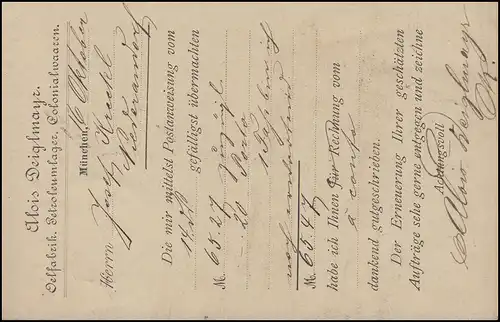 Alois Deiglmayr.
Oelfabrik, Petroleumlager, Colonialwaaren.
München, 16 Oktober
Herrn Josef
Niederamdorf
Die mir mittelst Postanweisung vom
gefälligst übermachten
M. 65.27
20 Porto
M. 65.47
habe ich Ihnen Für Rechnung vom
a conto
dankend gutgeschrieben.
Der Erneuerung Ihrer geschätzten
Aufträge sehe gerne entgegen und zeichne
Achtungsvoll
Alois Deiglmayr